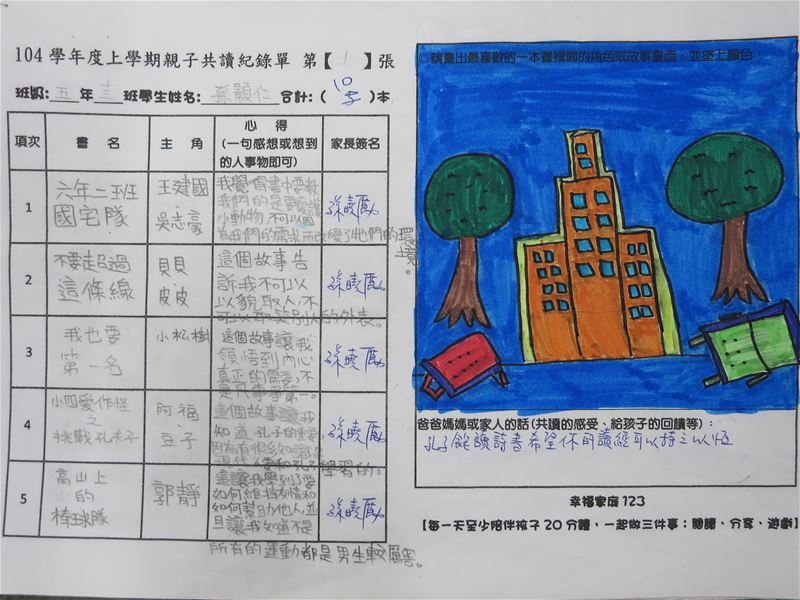 104學年度上學期親子共讀紀錄單 第【1】張
班級:五年三班學生姓名:孫顥仁 合計:(10本)本
項次 書名 主角 心得(一句感想或想到的人事物即可) 家長簽名
1
六年二班
國宅隊
王建國、
吳志豪
我覺得書中要教
我們的是要愛護
小動物,不可以因
為我們的需求而改變了牠們的環
境。
2
不要超過
這條線
貝貝
皮皮
這個故事告
訴我不可以
以貌取人,不
可以取笑別人的外表。
3
我也要
第一名
小松樹
這個故事讓我
領悟到內心
真正的需要,不
是凡事爭第一。
4
小四愛作怪
之
挑戰孔夫子
阿福、
豆子
這個故事讓我
知道孔子的重要
因為有很多知識是
學習的。
5
高山上
的
棒球隊
郭靜
這讓我學到了要
如何維持友情和
如何幫助他人,並
且讓我知道不是
所有的運動都是男生較厲害。
◎請畫出最喜歡的一本書裡面的角色或故事畫面,並塗上顏色:
爸爸媽媽或家人的話(共讀的感受、給孩子的回饋等):
孔子能讀詩書,希望你用讀經可以持之以恆
幸福家庭123
【每一天至少陪伴孩子20分鐘,一起做三件事:閱讀、分享、遊戲】